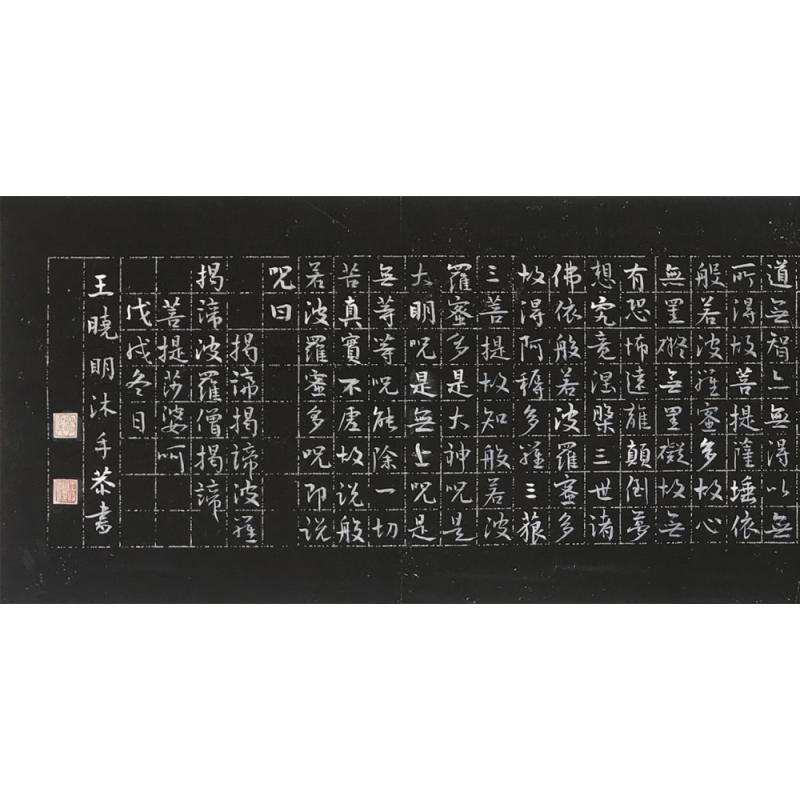 道無智亦無得以無
所得故菩提薩埵依
般若波羅蜜多故心
無罣礙無罣礙故無
有恐怖遠離顛倒夢
想究竟涅槃三世諸
佛依般若波羅蜜多
故得阿耨多羅三藐
三菩提故知般若波
羅蜜多是大神呪是
大明呪是無上呪是
無等等呪能除一切
苦真實不虛故說般
若波羅蜜多呪即說
呪曰
揭諦揭諦波羅
揭諦波羅僧揭諦
菩提莎婆呵
戊戌冬日
王曉明沐手恭書